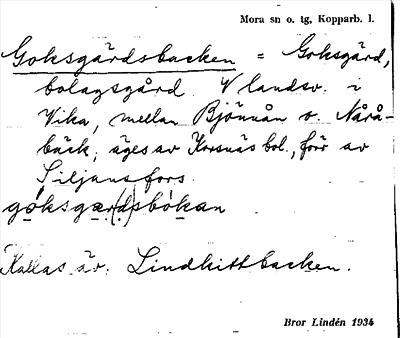 Mora sn o. tg, Kopparb. l.
Goksgårdsbacken = Goksgård,
bolagsgård V landsv. i
Vika, mellan Bjönnån o. Nårå-
bäck, äges av Korsnäs bol., förr av
Siljansfors.
góksgar(d)sbókan
Kallas äv. Lindkittbacken.
Bror Lindén 1934